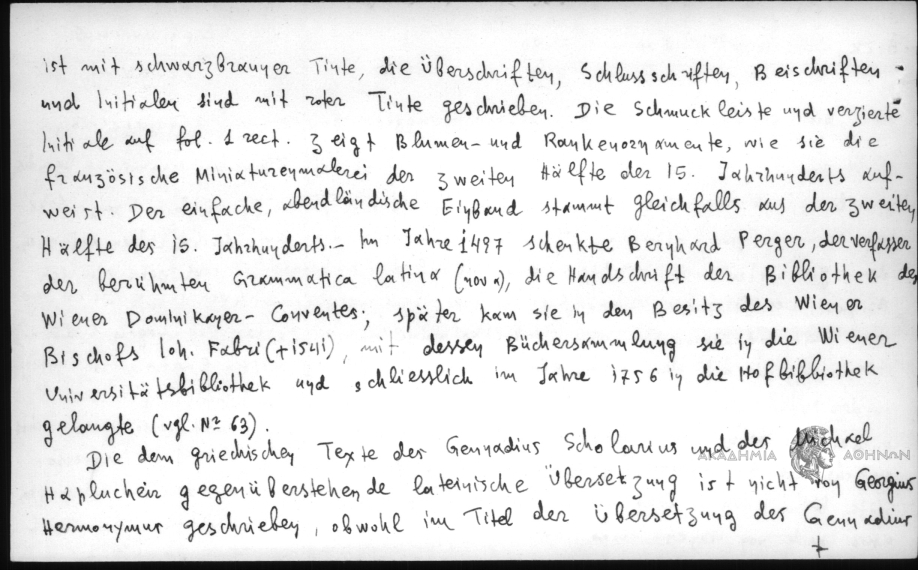 ist mit schwarzbrauner Tinte, die Überschriften, Schlussschriften, Beischriften
und Initialen sind mit roter Tinte geschrieben. Die Schmuckleiste und verzierte
Initiale auf fol. 1 rect. zeigt Blumen- und Rankenornamente, wie sie die
französische Miniaturenmalerei der zweiten Hälfte der 15. Jahrhunderts auf-
weist. Der einfache, abendländische Einband stammt gleichfalls aus der zweiten
Hälfte des 15. Jahrhunderts.- Im Jahre 1497 schenkte Bernhard Perger, der verfasser
der berühmten Grammatica latina (nova), die Handschrift der Bibliothek des
Wiener Dominikaner-Conventes; später kam sie in den Besitz des Wiener
Bischofs Ioh. Fabri (+1541), mit dessen Büchersammlung sie in die Wiener
Universitätsbibliothek und schliesslich im Jahre 1756 in die Hofbibliothek
gelangte (vgl. Nº 63).
Die dem griechischen Texte der Gennadius Scholarius und des Michael
ΑΚΑΔΗΜΙΑ ΑΘΗΝΩΝ
Haplucheir gegenüberstehende lateinische Übersetzung ist nicht von Georgius
Hermonymus geschrieben, obwohl im Titel der Übersetzung des Gennadius
+